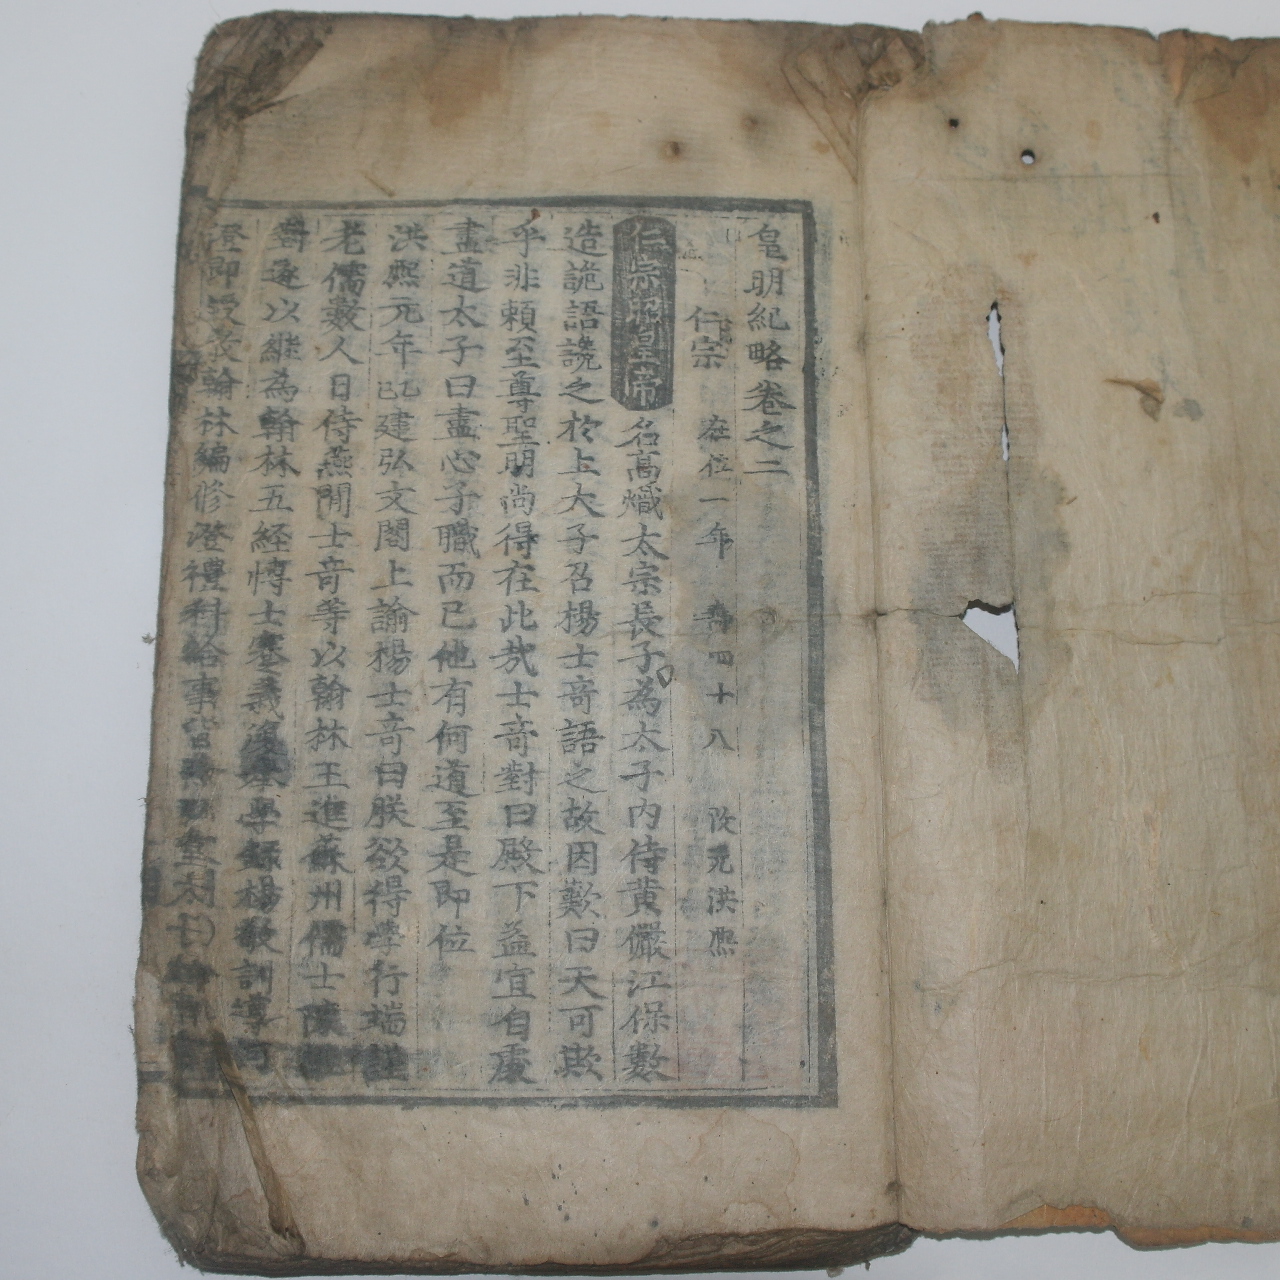 皇明紀略卷之二
仁宗 在位一年 壽四十八 改元洪熙
仁宗昭皇帝 名高熾太宗長子為太子內侍黄儼江保數
造詭語讒之於上太子召楊士竒語之故因歎曰天可欺
乎非賴至尊聖明尚得在此㢤士竒對曰殿下益宜自處
盡道太子曰盡心子職而已他有何道至是即位
洪熙元年乙巳建弘文閣上諭楊士竒曰朕欲得學行端謹
老儒數人日侍燕閒士竒等以翰林王進蘇州儒士陳繼
對遂以繼為翰林五經愽士蹇義楊敬訓導何
澄即授翰林編修澄禮科給事